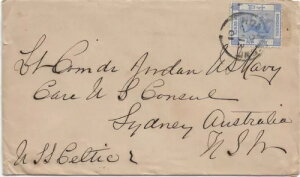 Lt Comdr Jordan US Navy
Care U S Consul
Sydney Australia
N.S.W
USS Celtic